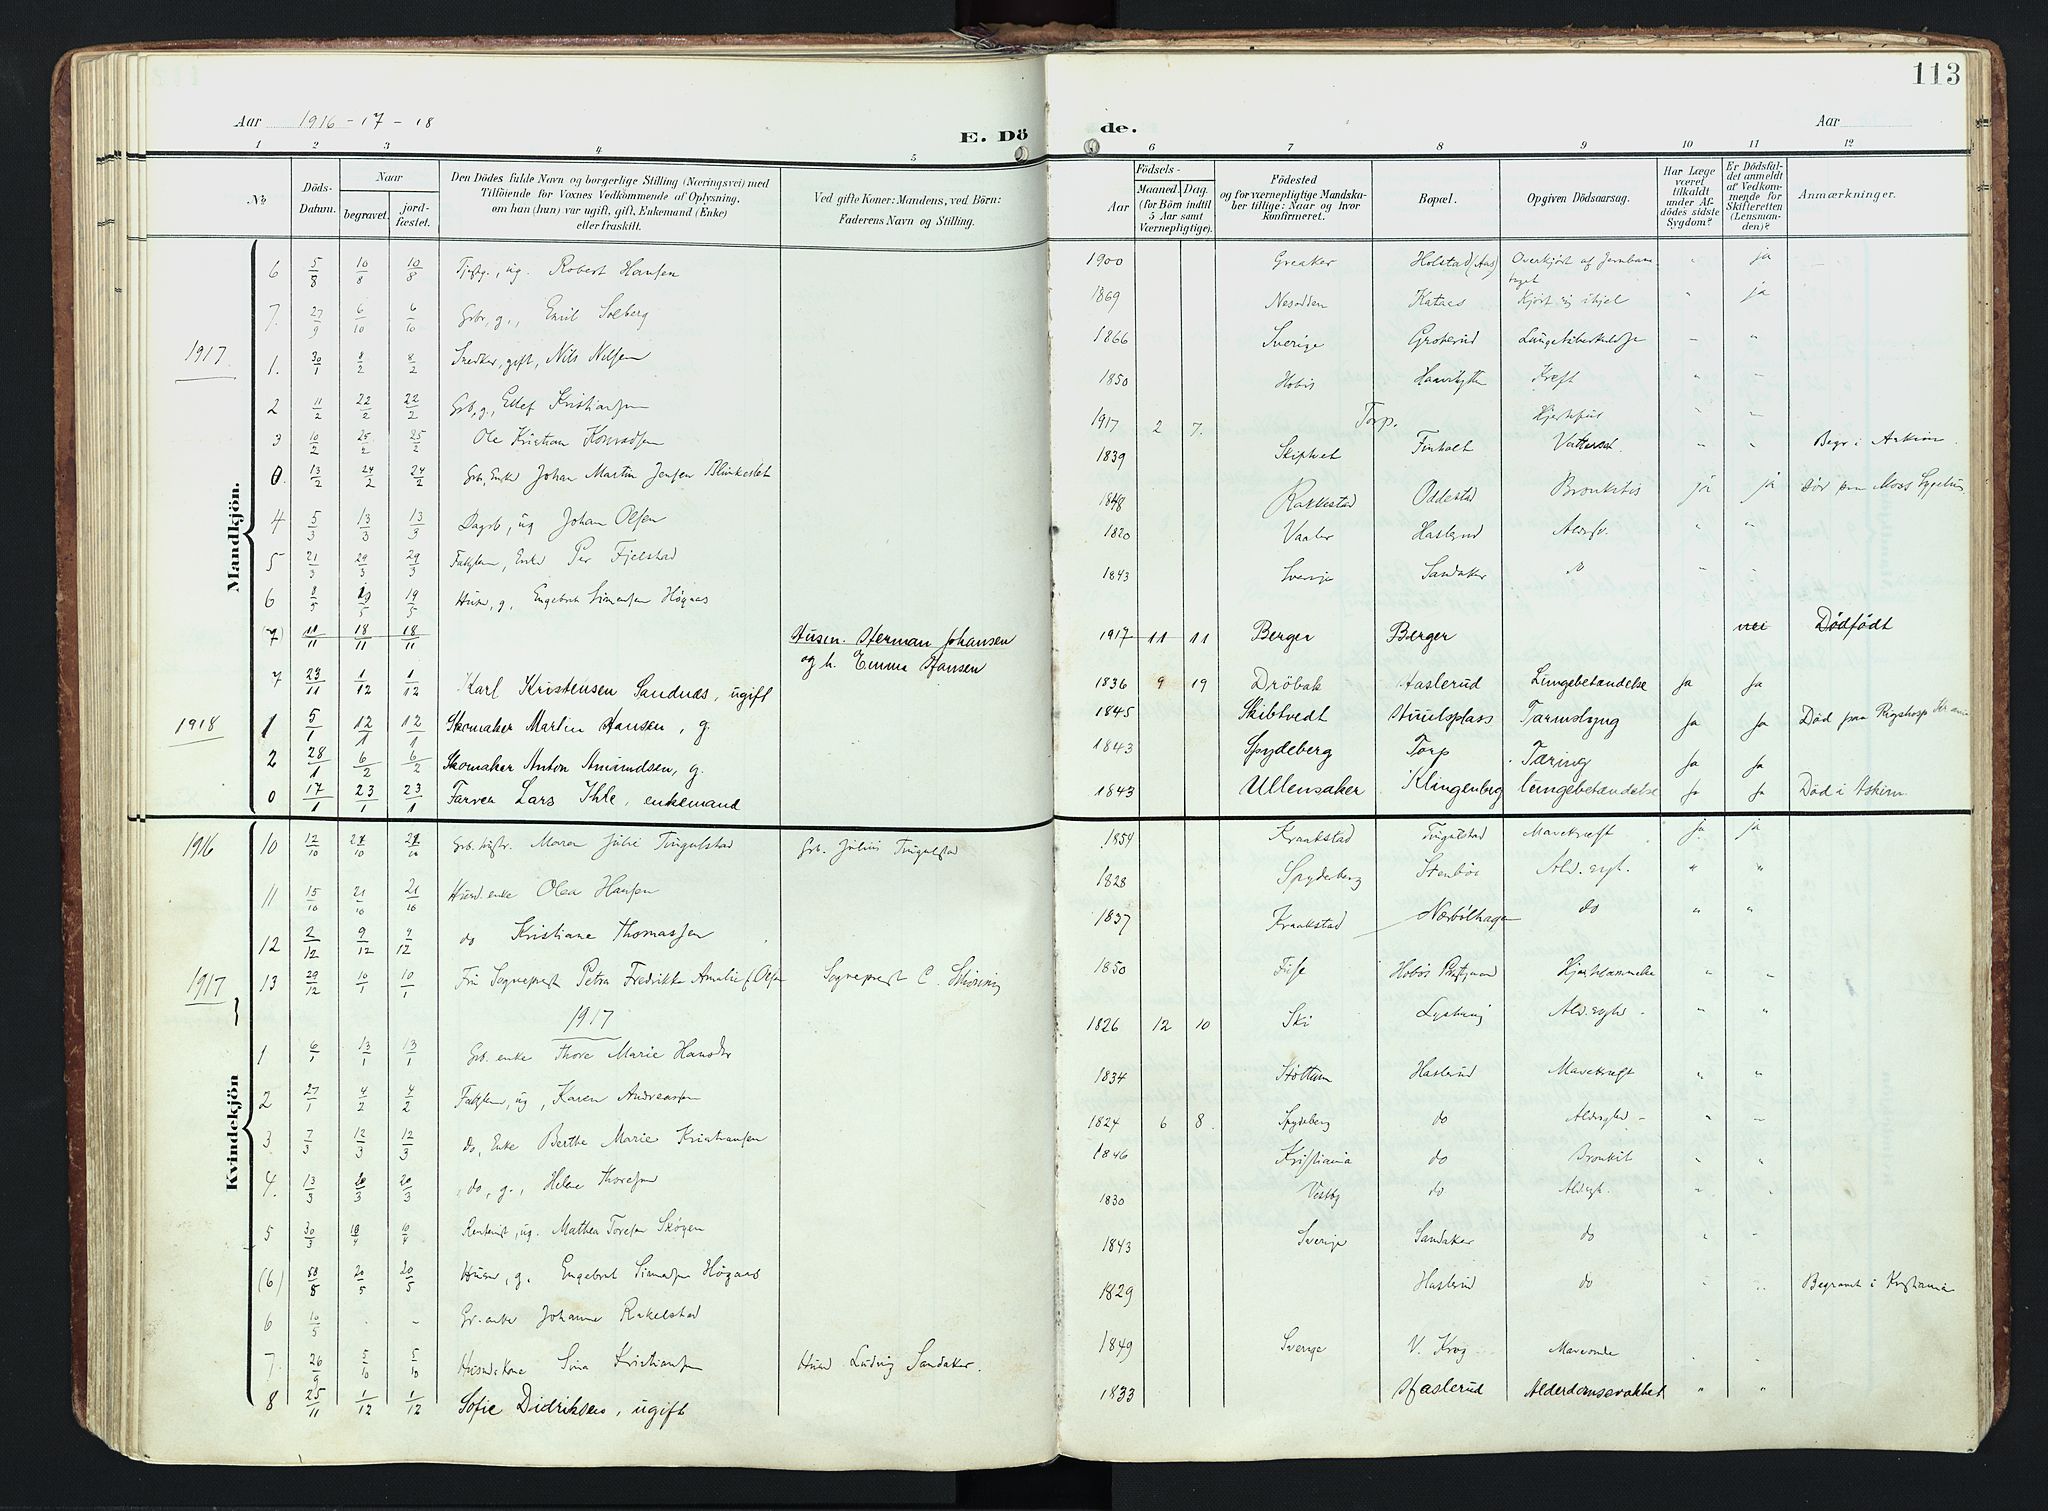 113
Aar 1916-17-18
E. Dö
de.
Aar
1 2 3 4 5 6 7 8 9 10 11 12
No
Döds-Datum.
Naar
begravet.
jordfæstet.
Den Dödes fulde Navn og borgerlige Stilling (Næringsvei) med
Tilföiende for Voxnes Vedkommende af Oplysning,
om han (hun) var ugift, gift, Enkemand (Enke)
eller fraskilt.
Ved gifte Koner: Mandens, ved Börn:
Faderens Navn og Stilling.
Födsels-
Aar
Maaned. Dag.
(for Börn indtil
5 Aar samt
Værnepligtige).
Födested
og for værnepligtige Mandska-
ber tillige: Naar og hvor
konfirmeret.
Bopæl.
Opgiven Dödsaarsag.
Har Læge
været
tilkaldt
under Af-
dödes sidste
Sygdom?
Er Dödsfal-
det anmeldt
af Vedkom-
mende for
Skifteretten
(Lensman-
den)?
Anmærkninger.
Mandkjön.
6 5/8 10/8 10/8 ug. Robert Hansen 1900 Greaker Holstad (Aas) Overkjört af Jernbanetoget " ja
7. 27/9 6/10 6/10 Grbr, g., Emil Solberg 1869 Nesodden Kataas Kjört sig ihjel " ja
1917
1. 30/1 8/2 8/2 Snedker, gift, Nils Nilsen 1866 Sverige Groterud
2 11/2 22/2 22/2 Grb, g, Ellef Kristiansen 1850 Hobøl Kreft
3 10/2 25/2 25/2 Ole Kristian Konradsen 1917 2 7. Torp.
0. 13/2 24/2 24/2 Grb, Enke Johan Martin Jensen 1839 Skiptvet Finholt Vattersot Begr i Askim.
4 5/3 13/3 13/3 Dagrb, ug Johan Olsen 1848 Rakkestad Oddestad Bronkitis ja ja Dör paa Moss Sygehus
5 21/3 29/3 29/3 Fattiglem, Enke Per Fjelstad 1820 Vaaler Haslerud
6 8/5 19/5 19/5 Husm, g, Engebret Simensen Høgaas 1843 Sverige Sandaker "
(7) 11/11 18/11 18/11 Husm. Herman Johansen
og h. Emma Hansen 1917 11 11 Berger Berger nei Dödfödt
7 23/11 1/12 1/12 Karl Kristensen Sandnæs, ugift 1836 9 19 Dröbak Haslerud Lungebetændelse Ja Ja
1918
1 5/1 12/1 12/1 Skomaker Martin Hansen, g. 1845 Skibtvedt Tarmslyng Ja Ja Död paa Rigshosp
2 28/1 6/2 6/2 Skomaker Anton Amundsen, g. 1843 Spydeberg Torp Tæring Ja Ja
0 17/1 23/1 23/1 Farver Lars Ihle, enkemand 1843 Ullensaker Klingenberg lungebetændelse Ja Ja Död i Askim
Kvindekjön
1916
10 12/10 21/10 21/10 Grb. hustr. Maren Julie Tingulstad Grb. Julius Tingulstad 1854 Kraakstad Tingulstad Mavekræft ja ja
11 15/10 21/10 21/10 Husm. enke Olea Hansen 1828 Spydeberg Stenbøl " "
12 2/12 9/12 9/12 do Kristiane Thomassen 1837 Kraakstad Nærbölhagen do " "
1917
13 29/12 10/1 10/1 Fru Sogneprest Petra Fredrikke Amalie Sogneprest C. 1850 Hobøl Hjertelammelse " "
1917
1 6/1 13/1 13/1 Grb. enke Thore Marie Hansdtr 1826 12 10 Ski " "
2 27/1 4/2 4/2 Fattiglem, ug, Karen Andreassen 1834 Haslerud Mavekræft " "
3. 7/3 12/3 12/3 do, Enke Berthe Marie Kristiansen 1824 6 8. Spydeberg do "
4. 13/3 20/3 20/3 do, g., Helene Thoresen 1846 Kristiania do Bronkit " "
5 30/3 10/4 10/4 ug. Mathea Toresen Skogen 1830 Vestby do
(6) 8/5 20/5 20/5 Husm, g. Engebret Simensen Høgaas 1843 Sverige Sandaker do
6 10/5 - - enke Johanne Rakelstad 1829 Haslerud do Begravet i Kristiania
7. 26/9 5/10 5/10 Husmdskone Sina Kristiansen Husm Ludvig Sandaker. 1849 Sverige V. Krog
8 25/11 1/12 1/12 Sofie Didriksen, ugift 1833 Haslerud Alderdomssvakhet " "